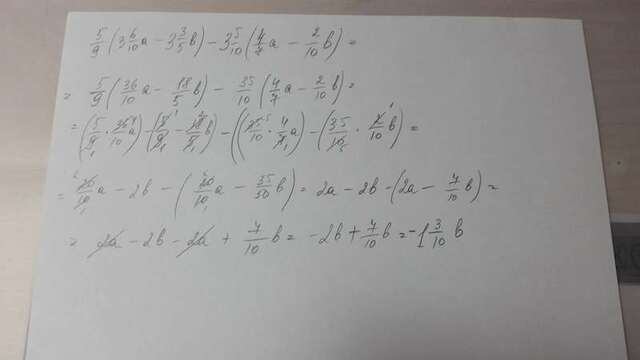 5/9 (3 6/10 a - 3 3/5 b) - 3 5/10 (4/7 a - 2/10 b) =
= 5/9 (36/10 a - 18/5 b) - 35/10 (4/7 a - 2/10 b) =
= (5/9 · 36/10 a) - (5/9 · 18/5 b) - ((35/10 · 4/7 a) - (35/10 · 2/10 b) =
= 20/10 a - 2b - (20/10 a - 35/50 b) = 2a - 2b - (2a - 7/10 b) =
= 2a - 2b - 2a + 7/10 b = -2b + 7/10 b = -1 3/10 b